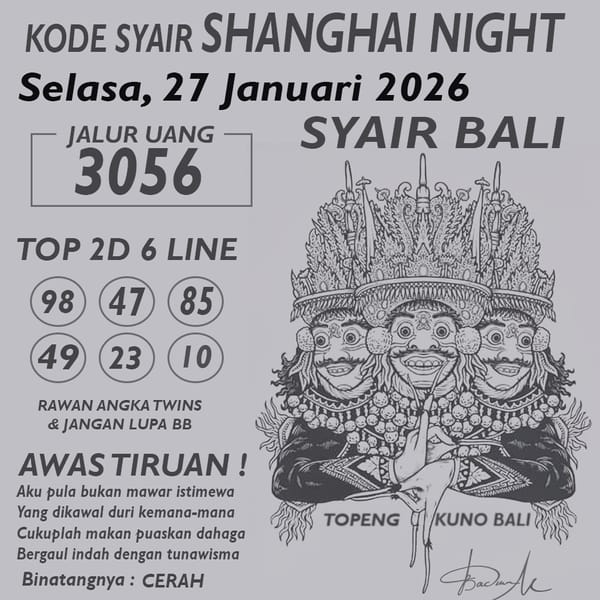 KODE SYAIR SHANGHAI NIGHT
Selasa, 27 Januari 2026
SYAIR BALI
JALUR UANG
3056
TOP 2D 6 LINE
98 47 85
49 23 10
RAWAN ANGKA TWINS
& JANGAN LUPA BB
AWAS TIRUAN !
Aku pula bukan mawar istimewa
Yang dikawal duri kemana-mana
Cukuplah makan puaskan dahaga
Bergaul indah dengan tunawisma
Binatangnya : CERAH
TOPENG KUNO BALI